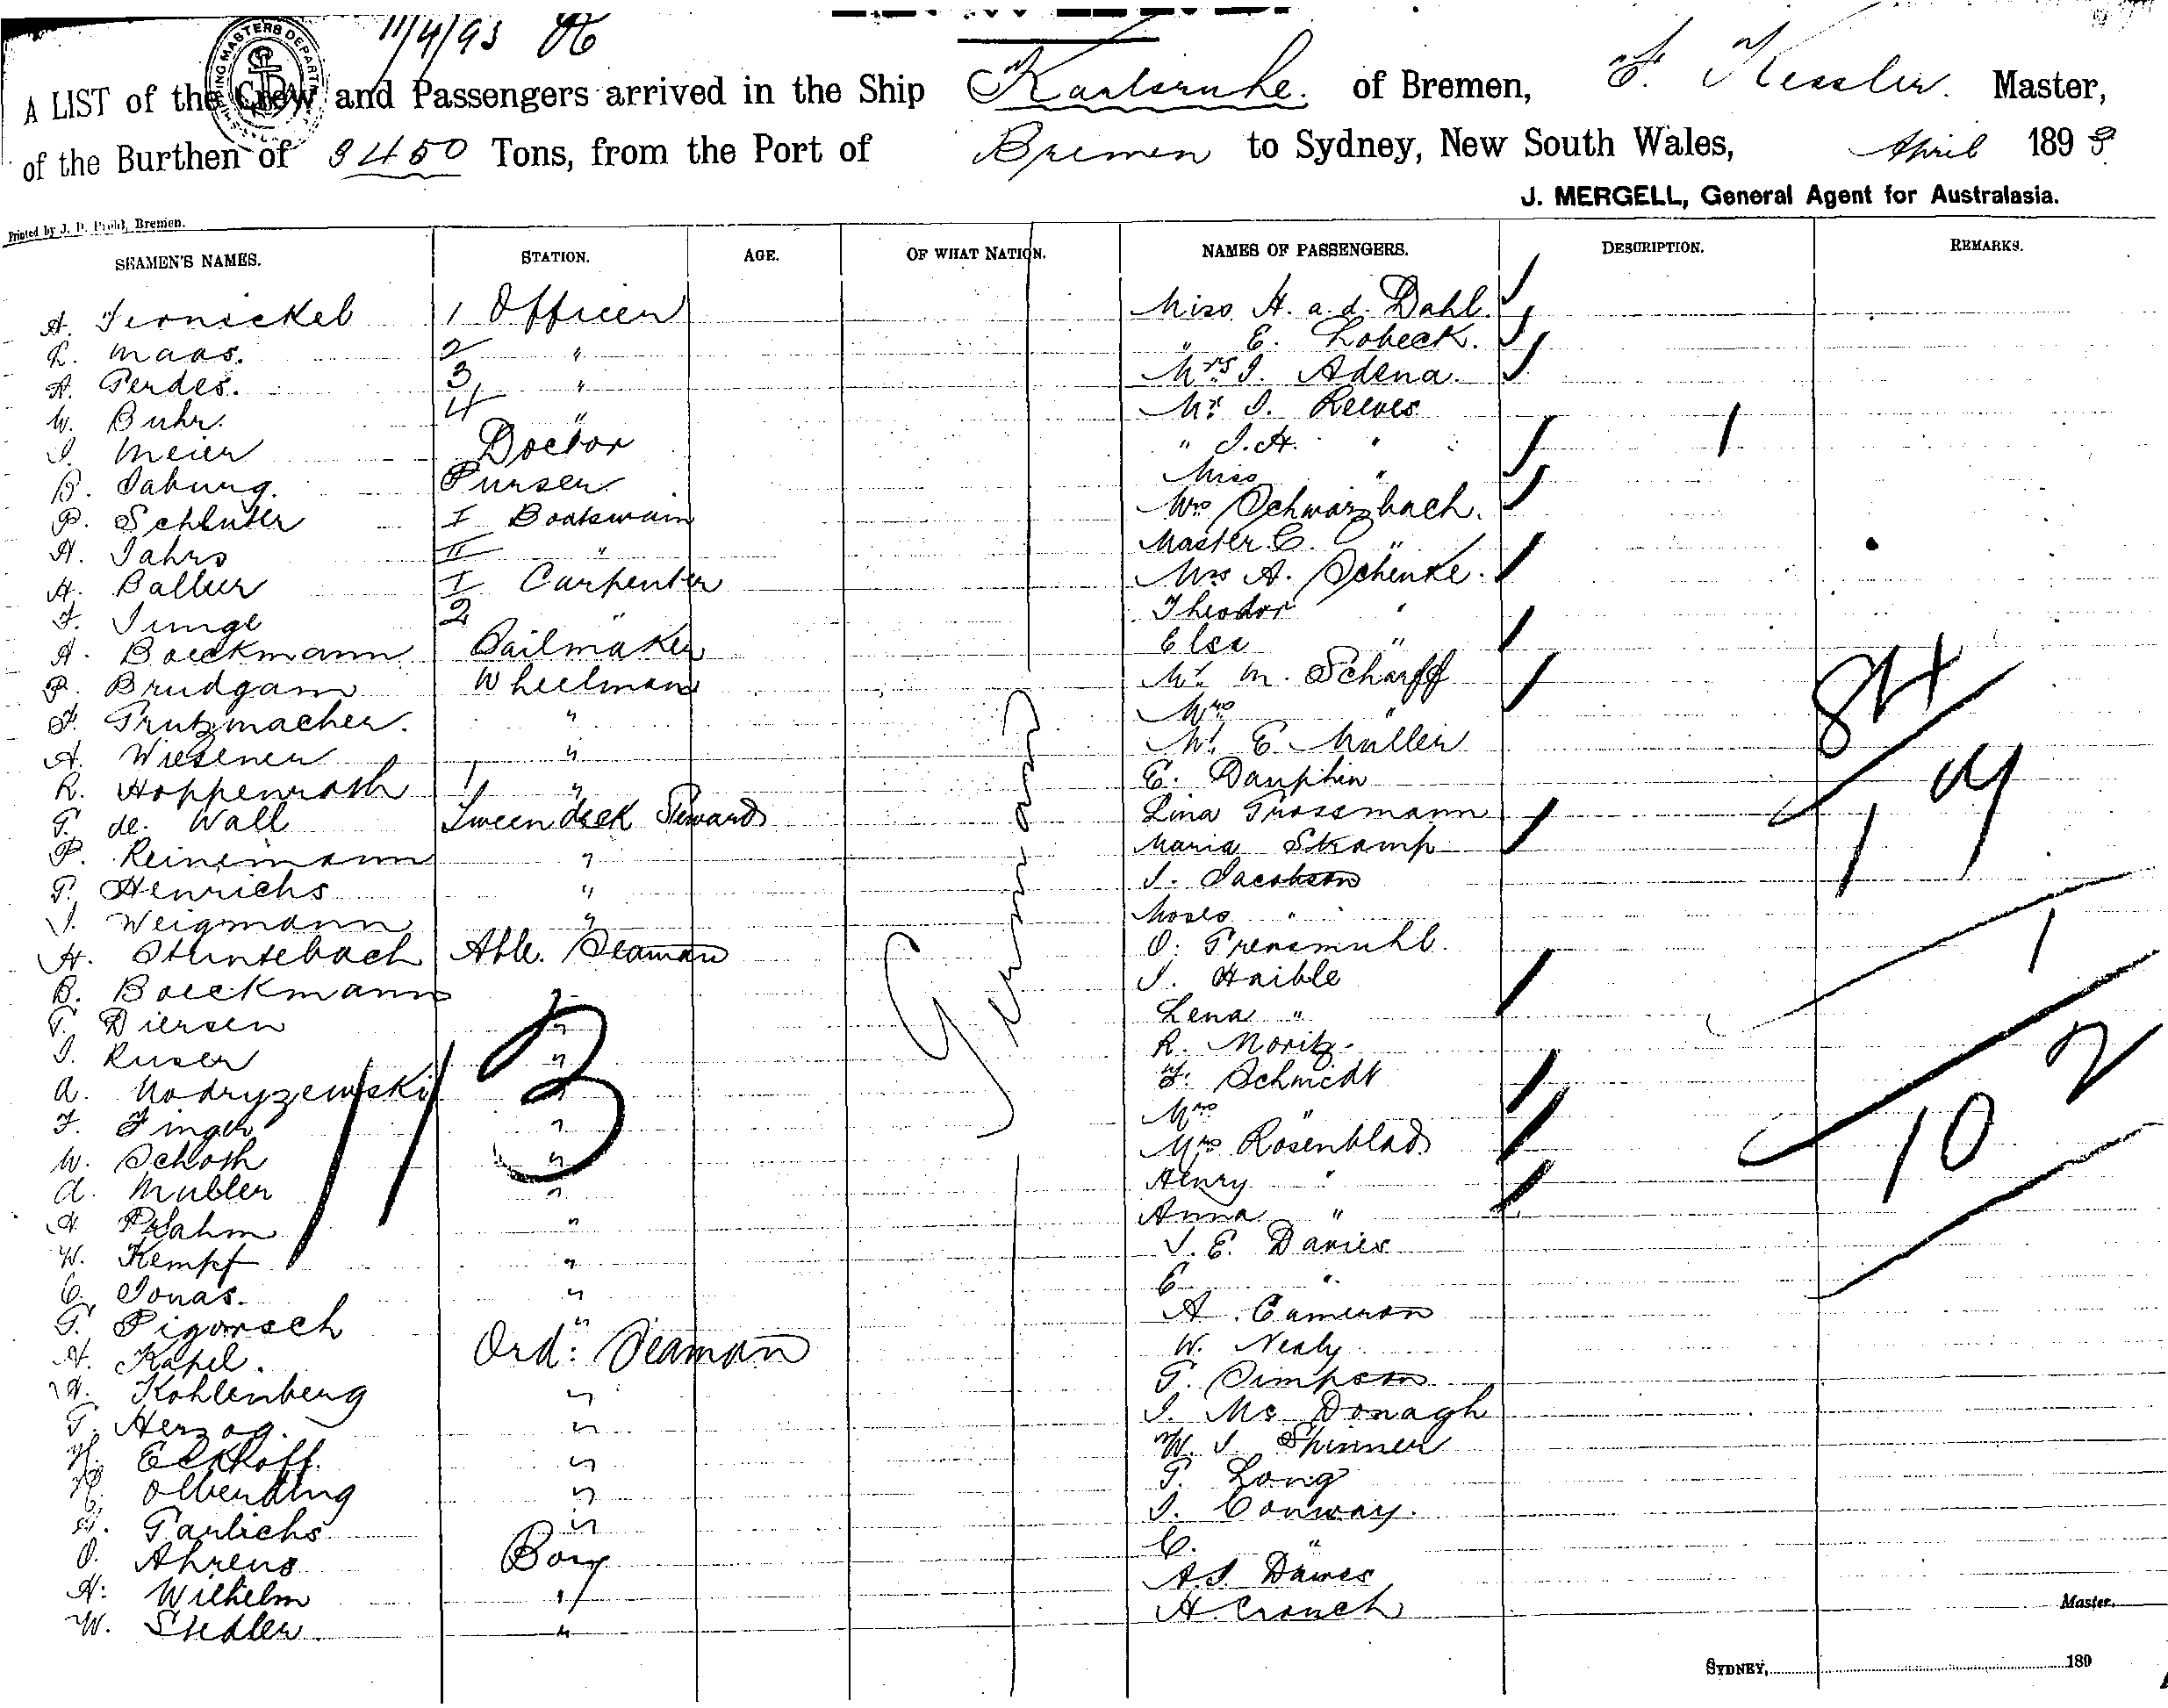 11/4/93
A LIST of the Crew and Passengers arrived in the Ship Karlsruhe. of Bremen, F. Kessler. Master,
of the Burthen of 3450 Tons, from the Port of Bremen to Sydney, New South Wales, April 1893
J. MERGELL, General Agent for Australasia.
Printed by J. D. Bremen.
SEAMEN'S NAMES. STATION. AGE. OF WHAT NATION. NAMES OF PASSENGERS. DESCRIPTION. REMARKS.
A. 1 Officer Miss H. a.d. Dahl.
R. Maas. 2 " " E. Lobeck.
A. Gerdes. 3 " Mrs I. Adena.
W. Buhr. 4 " Mr. I. Reeves
I. Meier Doctor " I.H. "
B. Jaburg. Purser Miss "
P. Schluter I Boatswain Mrs Schwarzbach.
H. Jahrs II " Master C. "
H. Balleer I Carpenter Mrs A. Schenke.
F. Junge 2 " Theodor "
A. Boeckmann Sailmaker Else "
P. Brudgam Wheelman Mr. M. Scharff
F. Grutzmacher. " Mrs "
A. Wiesener " Mr. E. Muller
R. Hoppenrath " E. Dauphin
G. de. Wall Tweendeck Steward Lina Grossmann
P. Reinemann " Maria Stramp
G. Henrichs " I. Jacobson
J. Weigmann " Moses "
H. Stuntebach Able. Seaman O.
B. Boeckmann " J. Haible
G. Diersen " Lena "
I. Ruser " R. Moritz
A. Modryzewski " F. Schmidt
F. Finger " Mrs "
W. Schoth " Mrs Rosenblad
A. Mubler " Henry "
H. Prahm " Anna "
W. Kempf " J. E. Davies
C. Jonas. " E "
G. Pigorsch " A. Cameron
H. Kapel. Ord: Seaman W. Nealy
H. Kohlenberg " G. Simpson
G. Herzog. " I. Mc Donagh
H. Eckhoff. " W. J. Skinner
Olberding " G. Long
H. Garlichs " J. Conway.
O. Ahrens Boy C. "
H. Wilhelm " A.J. Dawes
W. Stedler " H. Crouch
Germany
113
84
19
1
2
10
Master.
SYDNEY, 189